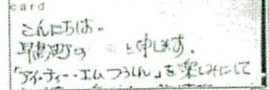 card
こんにちは。
と申します。
「アイ・ティー・エムつうしん」を楽しみにして